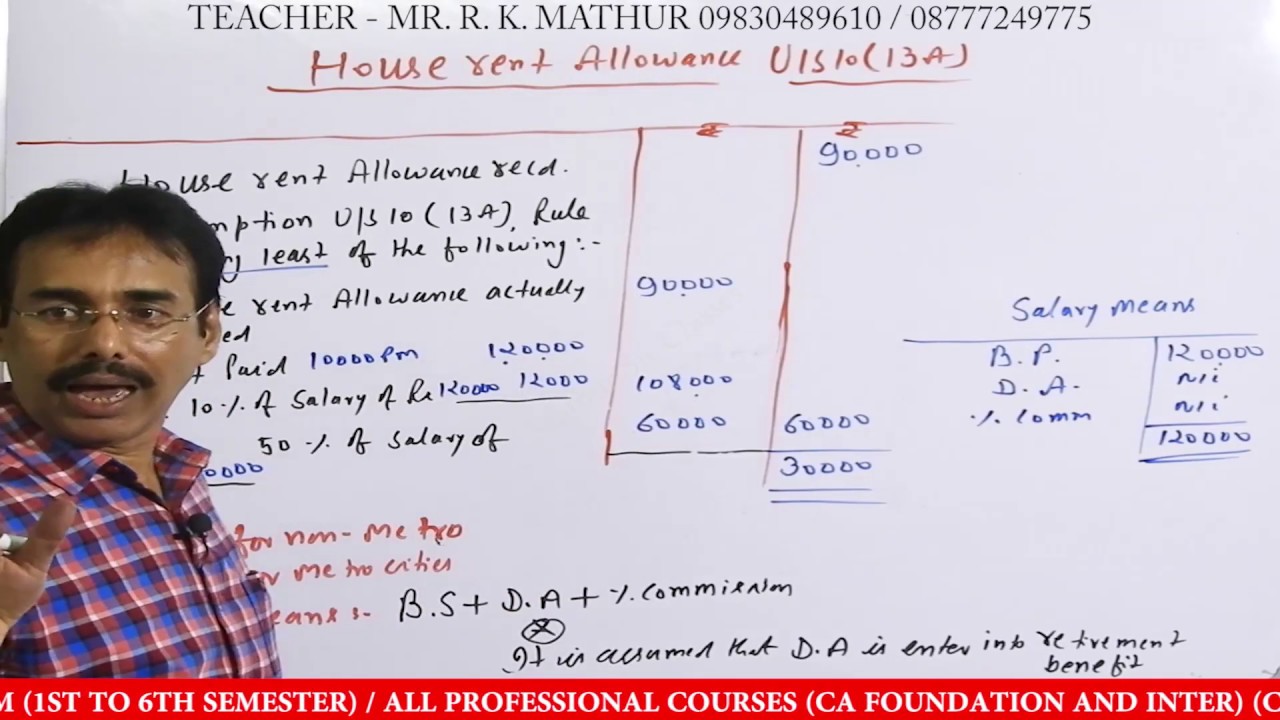 TEACHER - MR. R. K. MATHUR 09830489610 / 08777249775
House rent Allowance U/S 10(13A)
₹ ₹
House rent Allowance recd. 90.000
mption U/S 10(13A), Rule
least of the following:-
rent Allowance actually 90.000
ed
Paid 10000 Pm 120.000
10% of Salary of Rs 120000 12000 108.000
50% of Salary of 60000 60000
0000 30000
Salary means
B.P. 120000
D.A. Nil
% Comm Nil
120000
for non-Metro
Metro cities
eans :- B.S + D.A + % Commission
It is assumed that D.A is enter into retirement
benefit
M (1ST TO 6TH SEMESTER) / ALL PROFESSIONAL COURSES (CA FOUNDATION AND INTER) (C